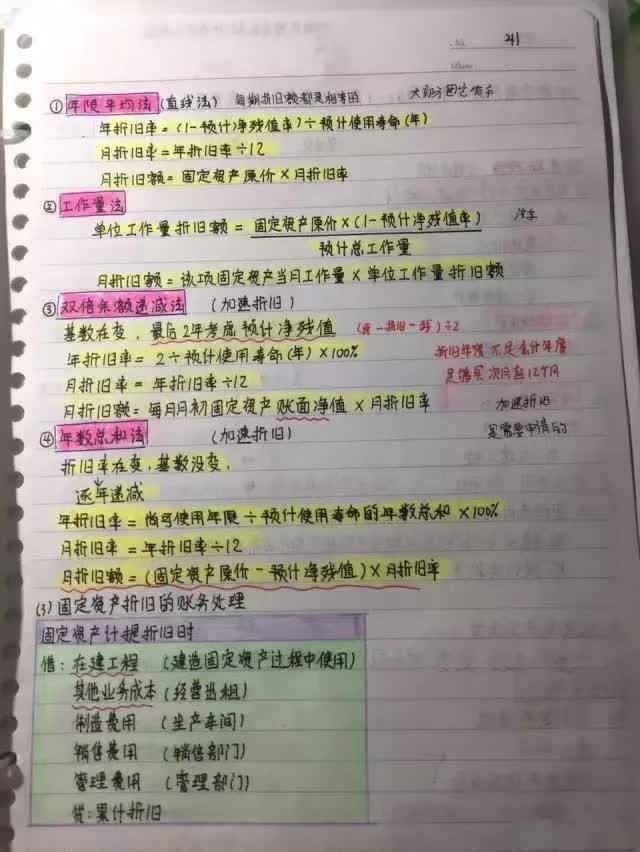 No. 41
Date
①年限平均法(直线法) 每期折旧额都是相等的 大部分固定资产
年折旧率=(1-预计净残值率)÷预计使用寿命(年)
月折旧率=年折旧率÷12
月折旧额=固定资产原价×月折旧率
②工作量法
单位工作量折旧额=固定资产原价×(1-预计净残值率) 汽车
预计总工作量
月折旧额=该项固定资产当月工作量×单位工作量折旧额
③双倍余额递减法 (加速折旧)
基数在变,最后2年考虑预计净残值 (原-折旧-残)÷2
年折旧率=2÷预计使用寿命(年)×100% 折旧年度不是会计年度
月折旧率=年折旧率÷12 是购买次月起12个月
月折旧额=每月月初固定资产账面净值×月折旧率 加速折旧
④年数总和法 (加速折旧) 是需要申请的
折旧率在变,基数没变,
逐年递减
年折旧率=尚可使用年限÷预计使用寿命的年数总和×100%
月折旧率=年折旧率÷12
月折旧额=(固定资产原价-预计净残值)×月折旧率
(3)固定资产折旧的账务处理
固定资产计提折旧时
借:在建工程 (建造固定资产过程中使用)
其他业务成本(经营出租)
制造费用 (生产车间)
销售费用 (销售部门)
管理费用 (管理部门)
贷:累计折旧